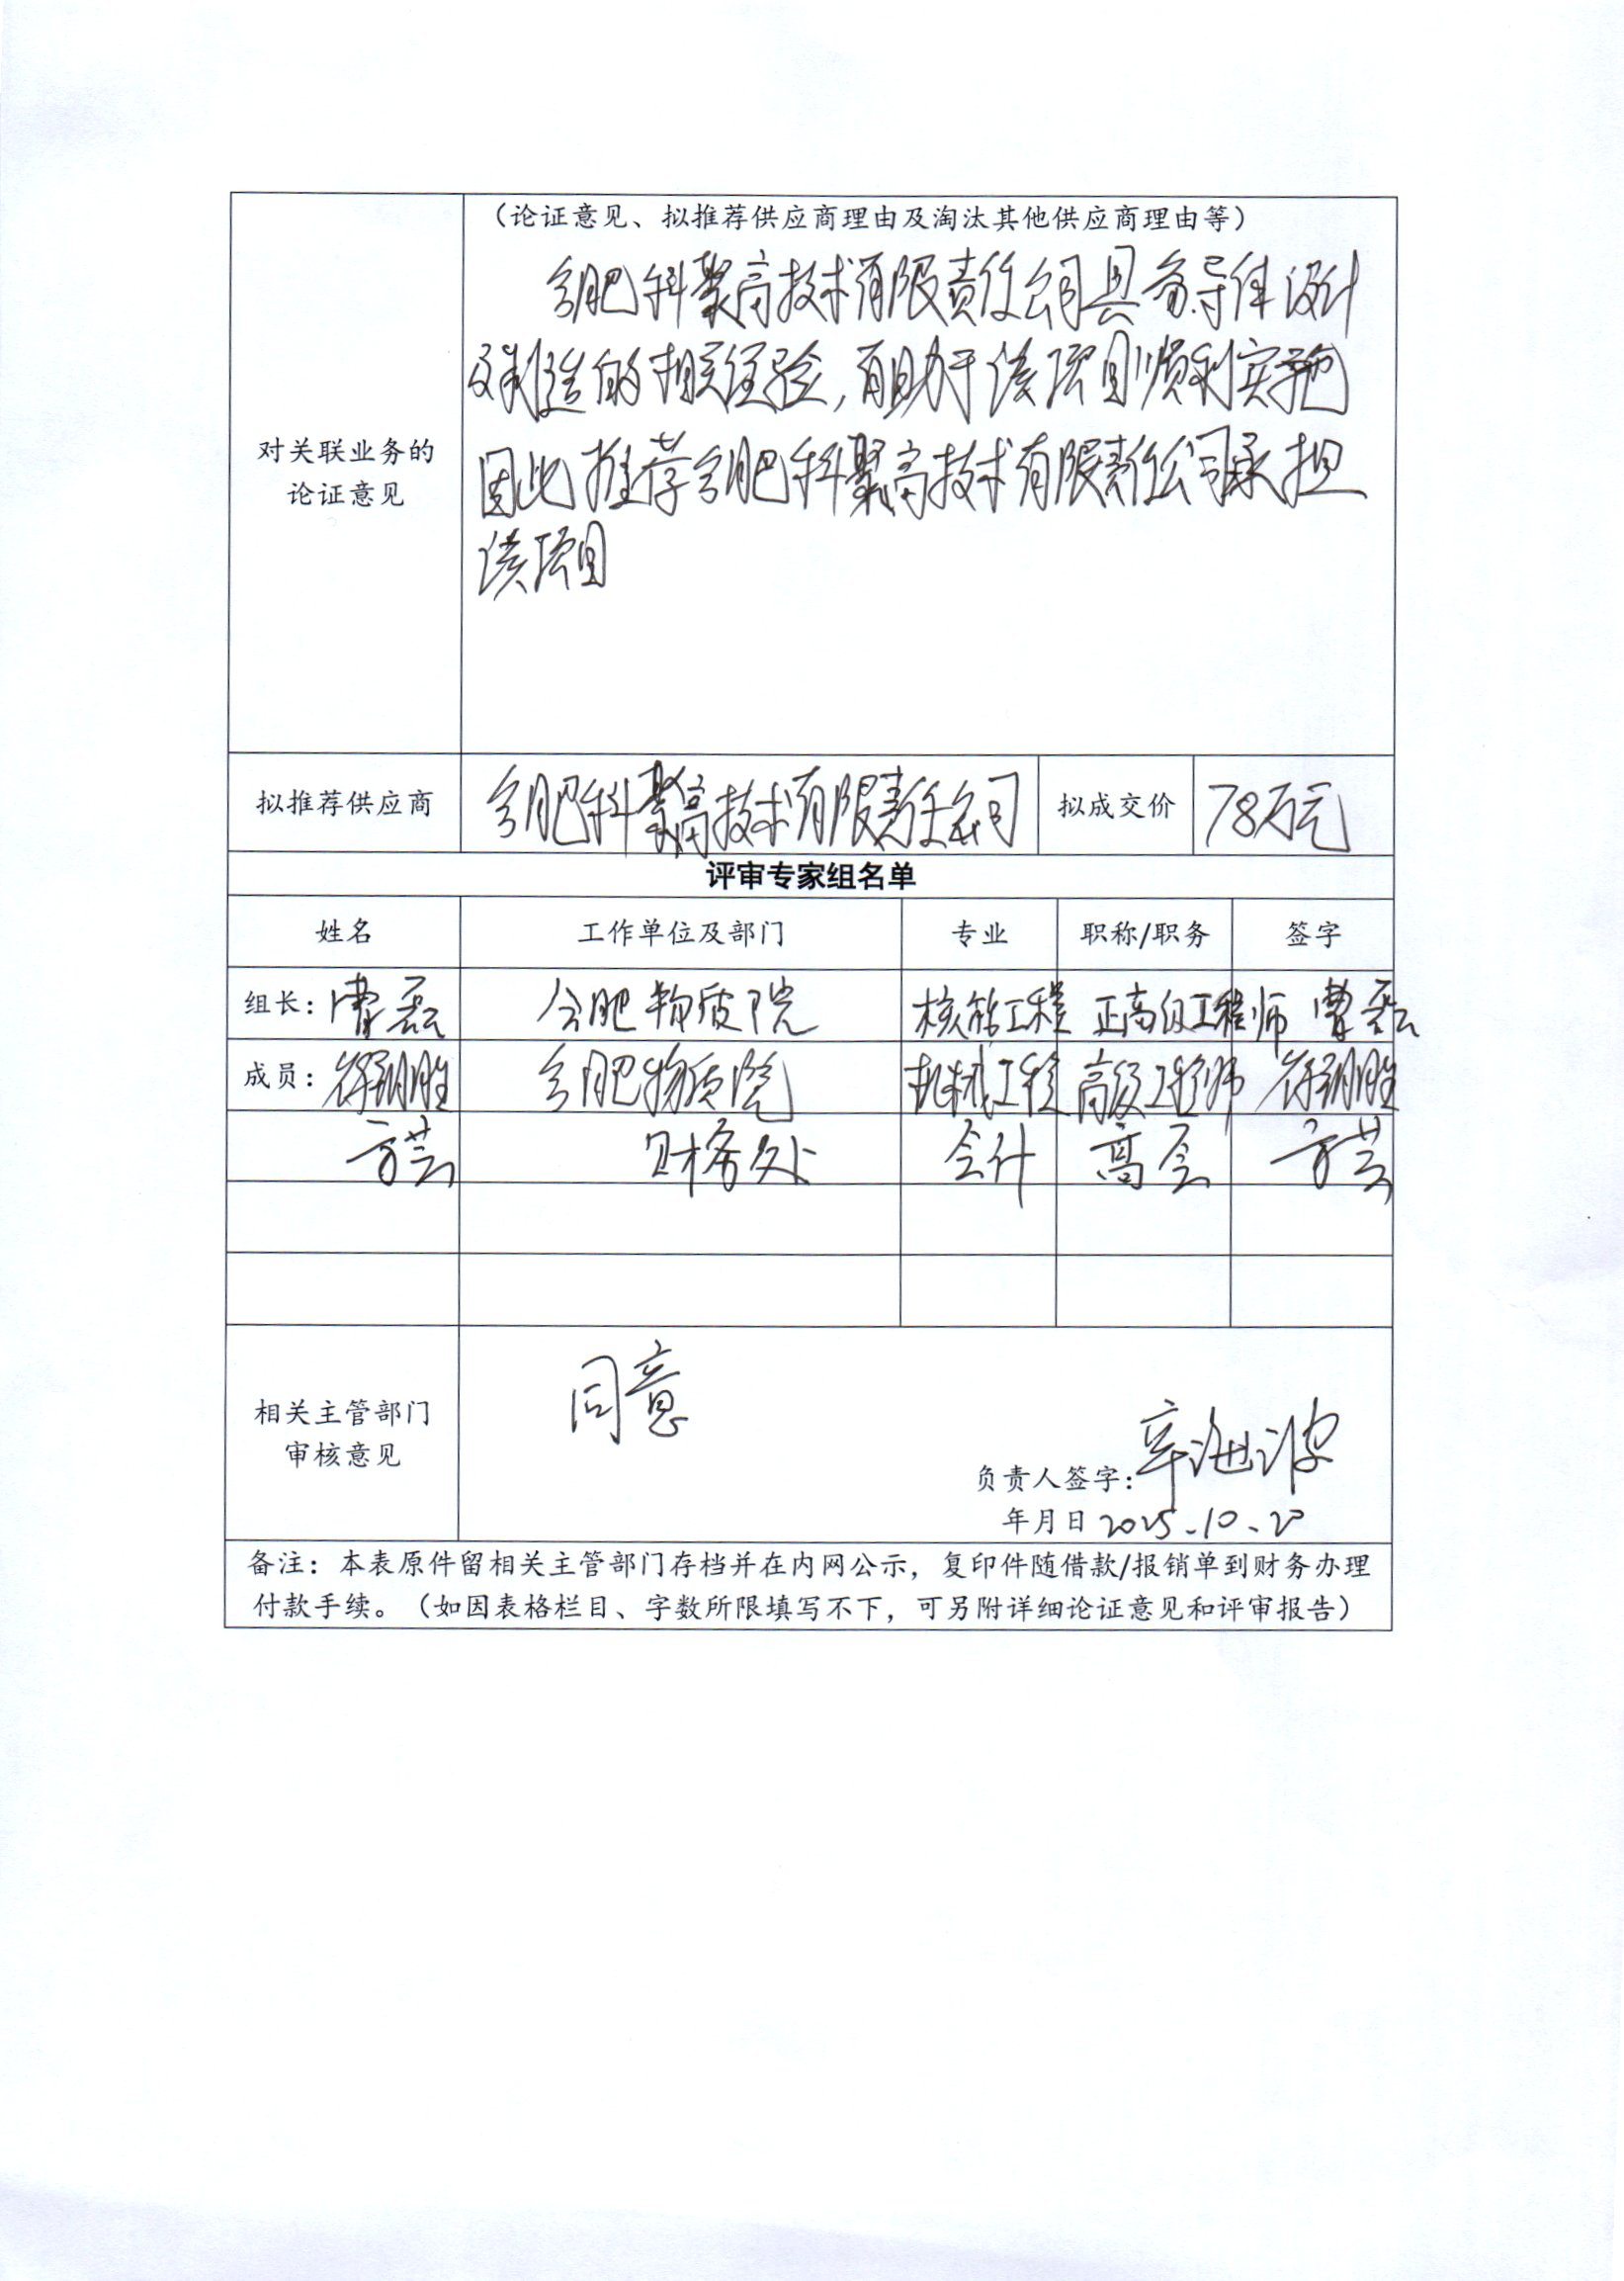 （论证意见、拟推荐供应商理由及淘汰其他供应商理由等）
合肥科聚高技术有限责任公司具备导体设计
及制造的相关经验，有助于该项目顺利实施
因此推荐合肥科聚高技术有限责任公司承担
该项目
对关联业务的
论证意见
拟推荐供应商 合肥科聚高技术有限责任公司 拟成交价 78万元
评审专家组名单
姓名 工作单位及部门 专业 职称/职务 签字
组长：曹磊 合肥物质院 核能工程 正高级工程师 曹磊
成员： 合肥物质院 机械工程 高级工程师
方芸 财务处 会计 高会 方芸
相关主管部门
审核意见
同意
负责人签字：
年月日 2025.10.20
备注：本表原件留相关主管部门存档并在内网公示，复印件随借款/报销单到财务办理
付款手续。（如因表格栏目、字数所限填写不下，可另附详细论证意见和评审报告）